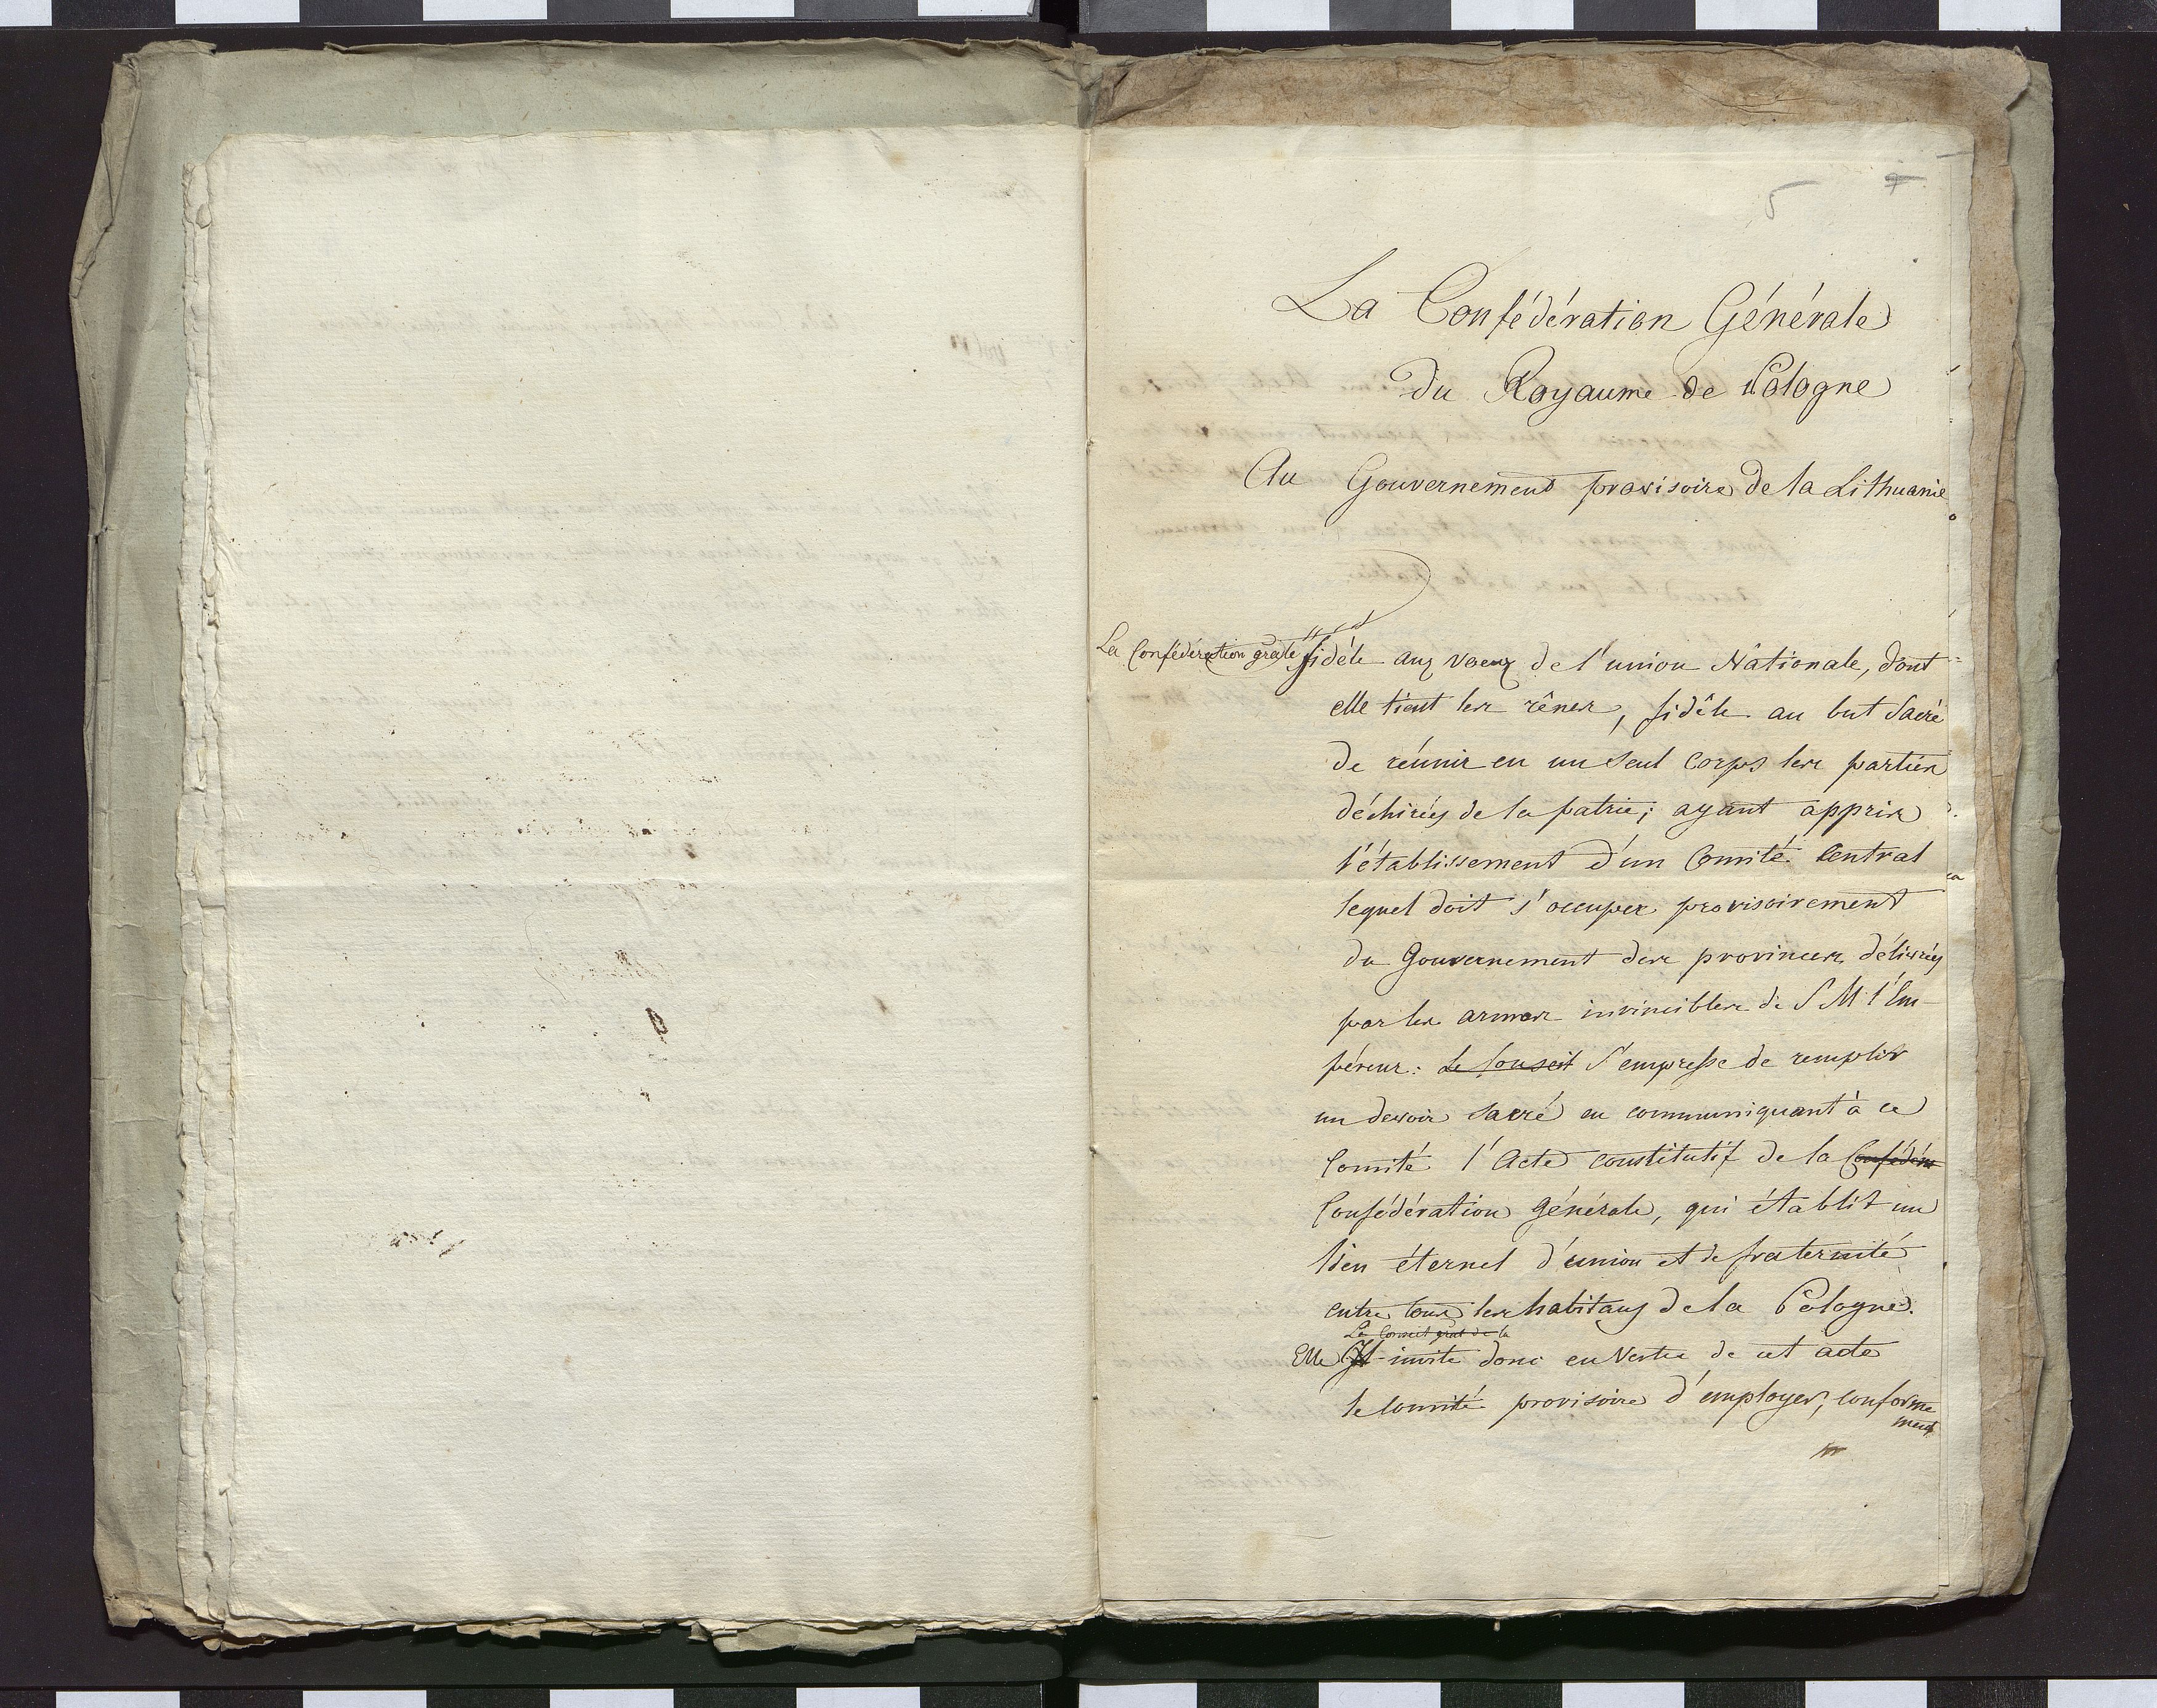 5 7
La Confédération Générale
du Royaume de Pologne
Au Gouvernement provisoire de la Lithuanie
La Confédération grale fidéle aux vœux de l'union Nationale, dont
elle tient les rênes, fidêle au but sacré
de réunir en un seul corps les parties
déchirées de la patrie; ayant appris
l'établissement d'un Comité Central
lequel doit s'occuper provisoirement
du Gouvernement des provinces délivrées
par les armes invincibles de S M l'Em-
péreur: Le Conseil S'empresse de remplir
un devoir sacré en communiquant à ce
Comité l'Acte constitutif de la Confédéra
Confédération Générale, qui établit un
lien éternel d'union et de fraternité
entre tous les habitans de la Pologne.
Le Conseil gral de la
Elle Il invite donc en Vertu de cet acte
le Comité provisoire d'employer, conforme
ment